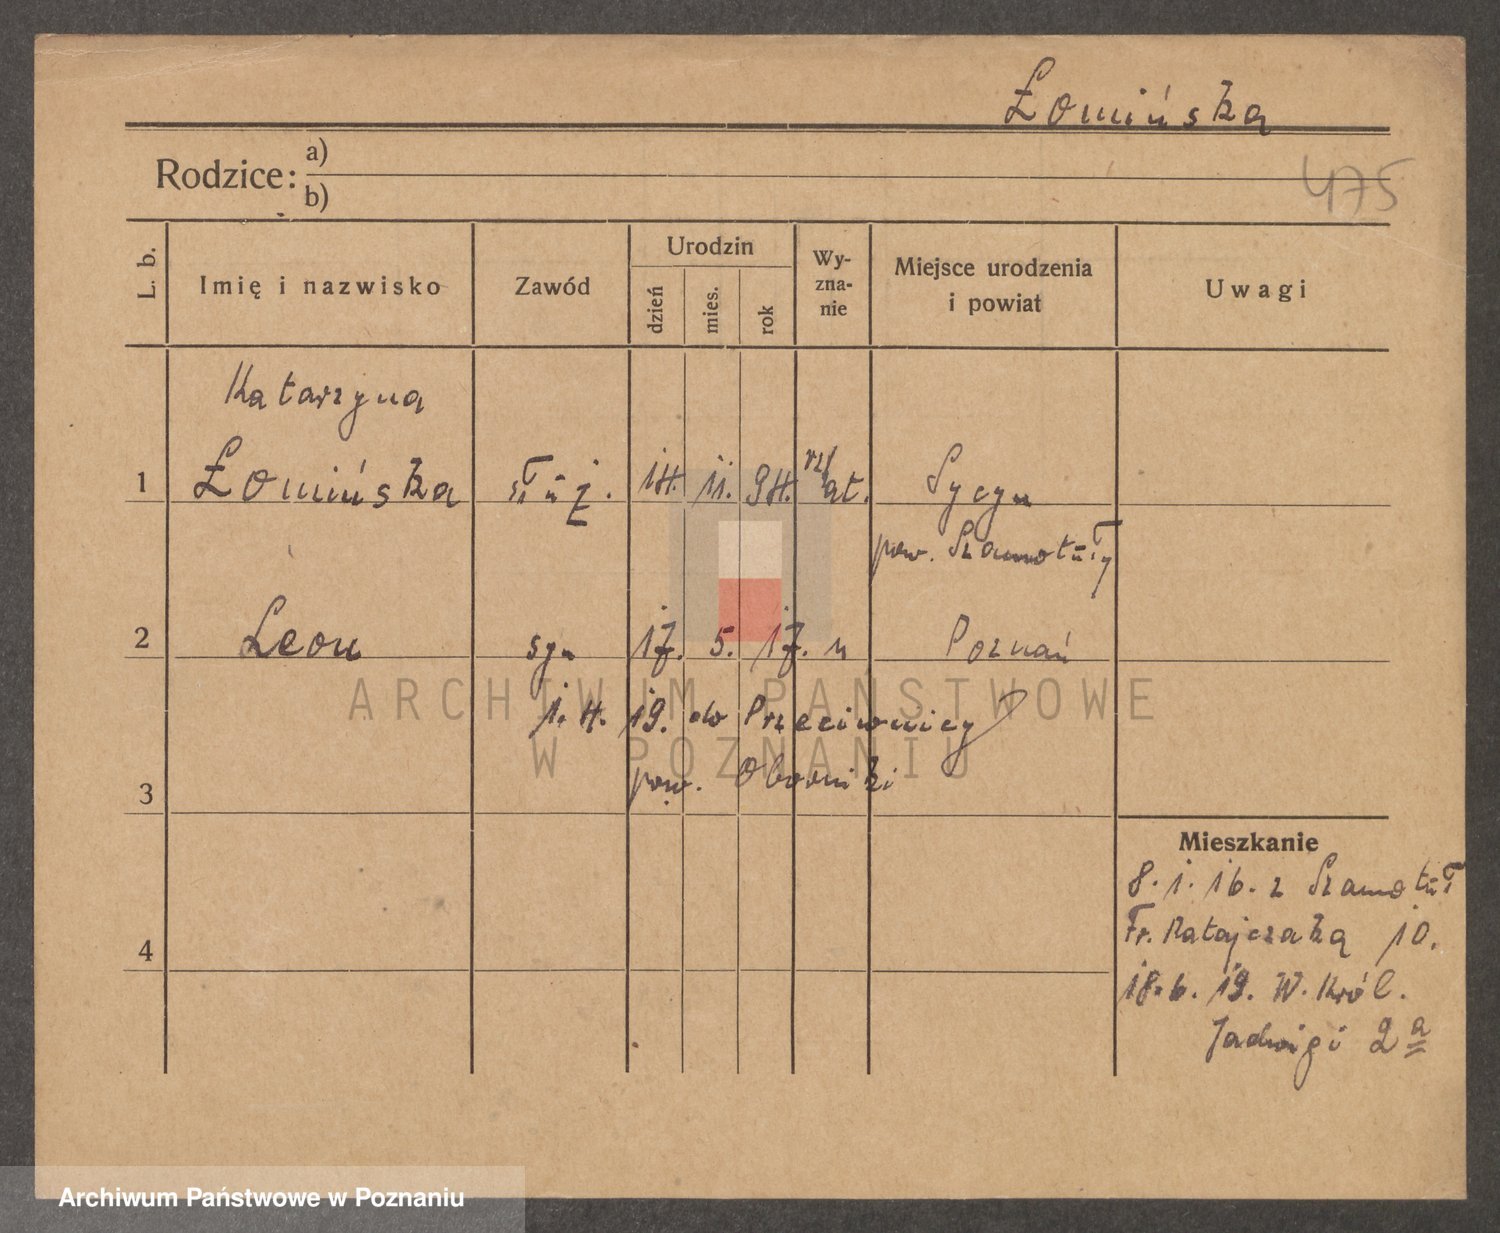 Łomińska
Rodzice:
a)
b)
475
L. b.
Imię i nazwisko
Zawód
Urodzin
dzień
mies.
rok
Wy-
zna-
nie
Miejsce urodzenia
i powiat
Uwagi
Katarzyna
1 Łomińska służ. 14. 11. 94. rzf/at. Sycyn
pow. Szamotuły
2 Leon syn 17. 5. 17. " Poznań
1. 4. 19. do Przeciwnicy
pow. Oborniki
3
4
Mieszkanie
8. 1. 16. z Szamotuł
Fr. Ratajczaka 10.
18. 6. 19. W. Król.
Jadwigi 2 a
ARCHIWUM PAŃSTWOWE
W POZNANIU
Archiwum Państwowe w Poznaniu